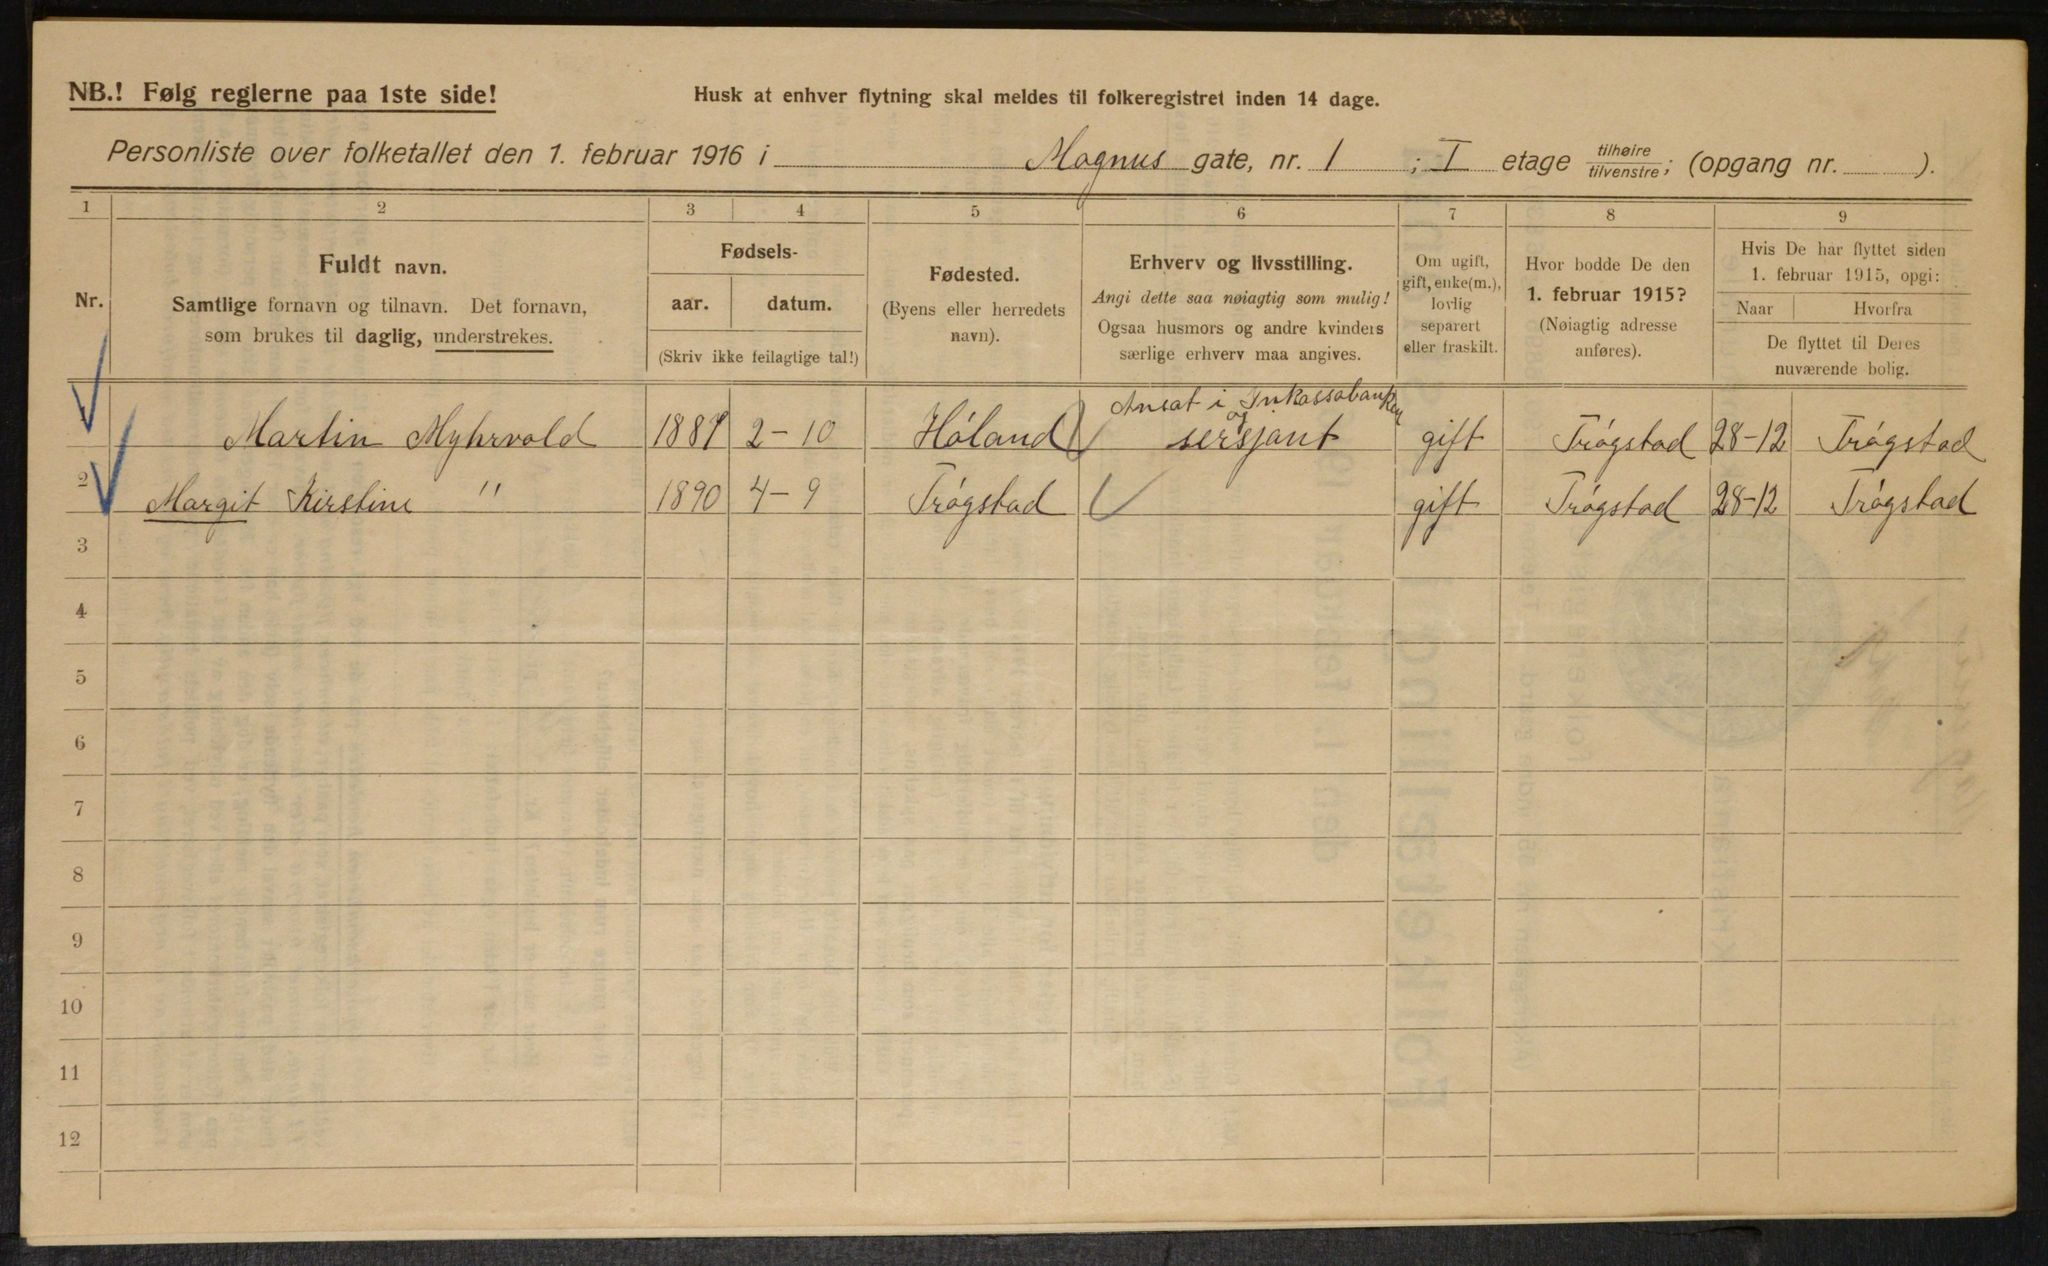 NB.! Følg reglerne paa 1ste side!
Husk at enhver flytning skal meldes til folkeregistret inden 14 dage.
Personliste over folketallet den 1. februar 1916 i Magnus gate, nr. 1 ; I etage tilhøire/tilvenstre; (opgang nr. ).
1 2 3 4 5 6 7 8 9
Nr.
Fuldt navn.
Samtlige fornavn og tilnavn. Det fornavn,
som brukes til daglig, understrekes.
Fødsels-
aar. datum.
(Skriv ikke feilagtige tal!)
Fødested.
(Byens eller herredets
navn).
Erhverv og livsstilling.
Angi dette saa nøiagtig som mulig!
Ogsaa husmors og andre kvinders
særlige erhverv maa angives.
Om ugift,
gift, enke(m.),
lovlig
separert
eller fraskilt.
Hvor bodde De den
1. februar 1915?
(Nøiagtig adresse
anføres).
Hvis De har flyttet siden
1. februar 1915, opgi:
Naar Hvorfra
De flyttet til Deres
nuværende bolig.
Ansat i Inkassobanken
og
1 Martin Myhrvold 2-10 Høland sersjant gift Trøgstad 28-12 Trøgstad
2 Margit Kirstine " 1890 4-9 Trøgstad gift Trøgstad 28-12 Trøgstad
3
4
5
6
7
8
9
10
11
12